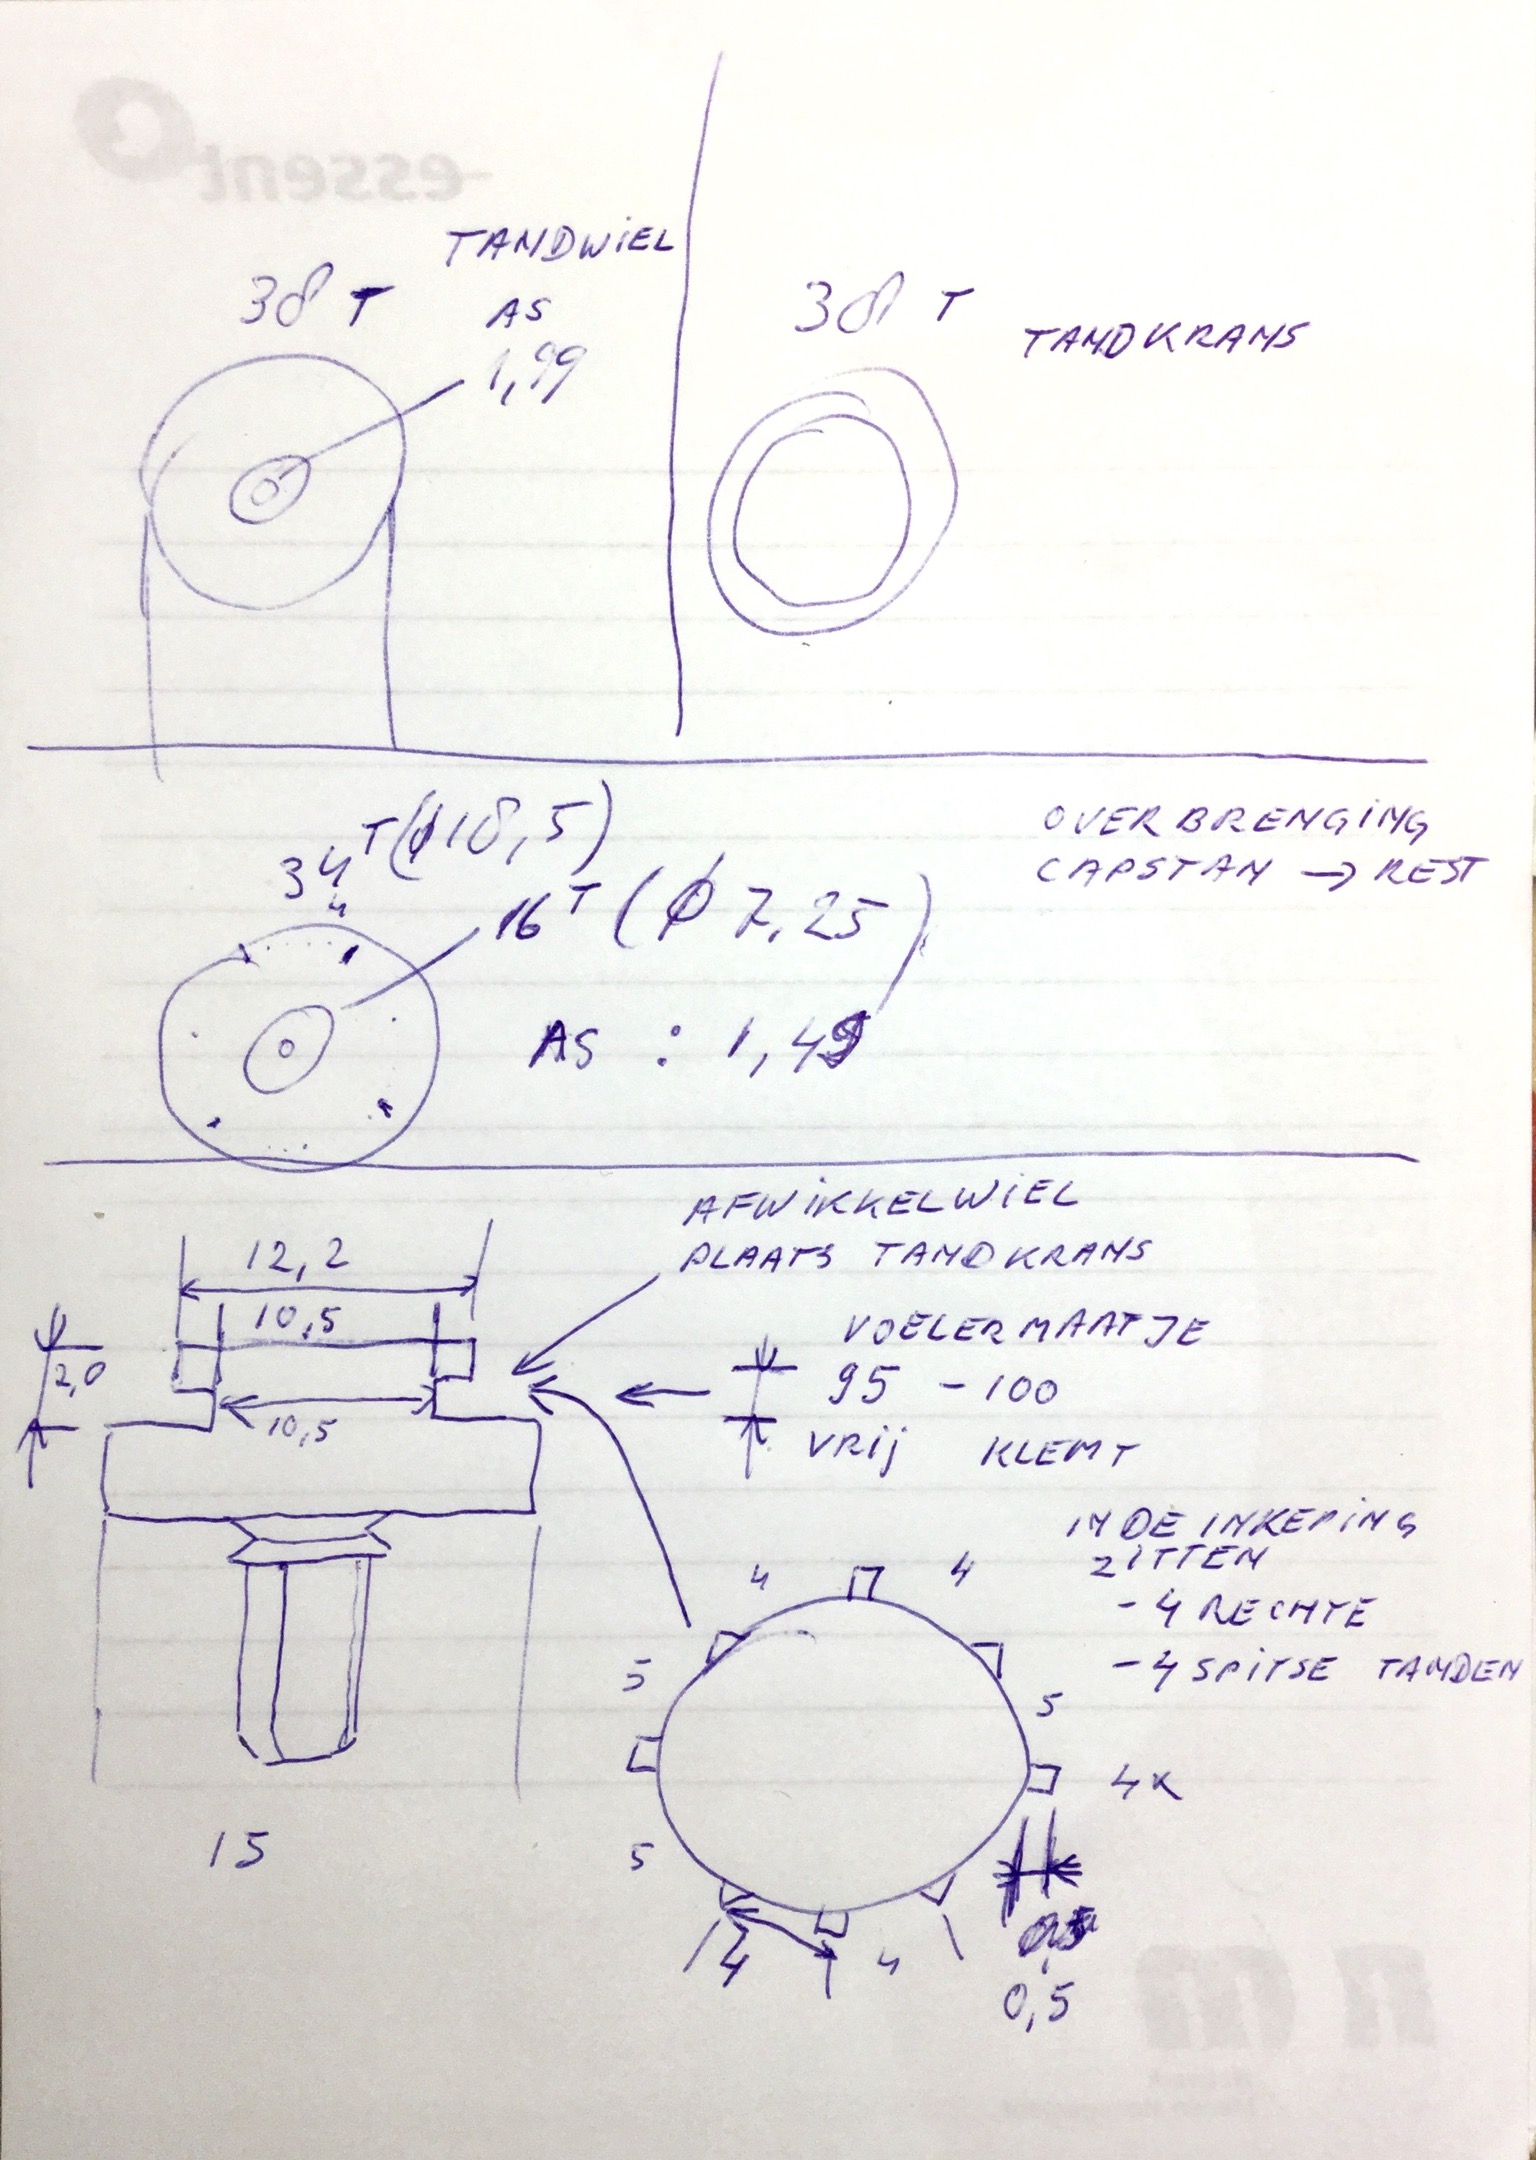 essent
TANDWIEL
38 T
AS
1,99
38 T
TANDKRANS
34 T (ϕ18,5)
16 T (ϕ 7,25)
AS : 1,49
OVERBRENGING
CAPSTAN → REST
AFWIKKELWIEL
PLAATS TANDKRANS
12,2
10,5
2,0
10,5
VOELERMAATJE
95 - 100
VRIJ KLEMT
IN DE INKEPING
ZITTEN
- 4 RECHTE
- 4 SPITSE TANDEN
4
4
5
5
4x
5
4
4
0,5
15